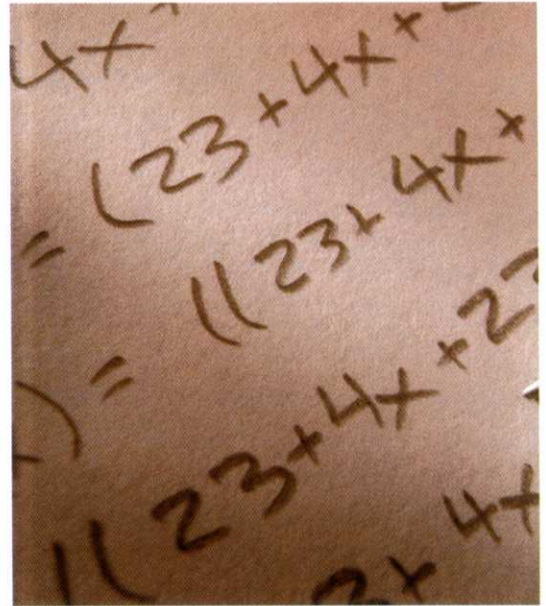 4x
= (23+4x+
((23+4x+
) = ((23+4x+23
3+4x